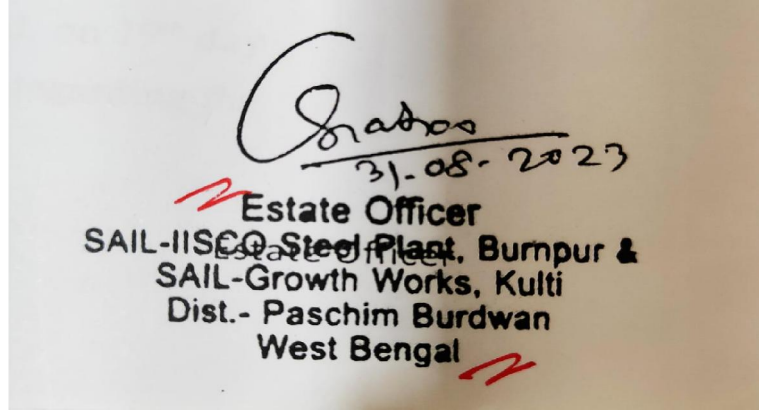 31-08-2023
Estate Officer
SAIL-IISCO Steel Plant, Burnpur &
Estate Officer
SAIL-Growth Works, Kulti
Dist.- Paschim Burdwan
West Bengal